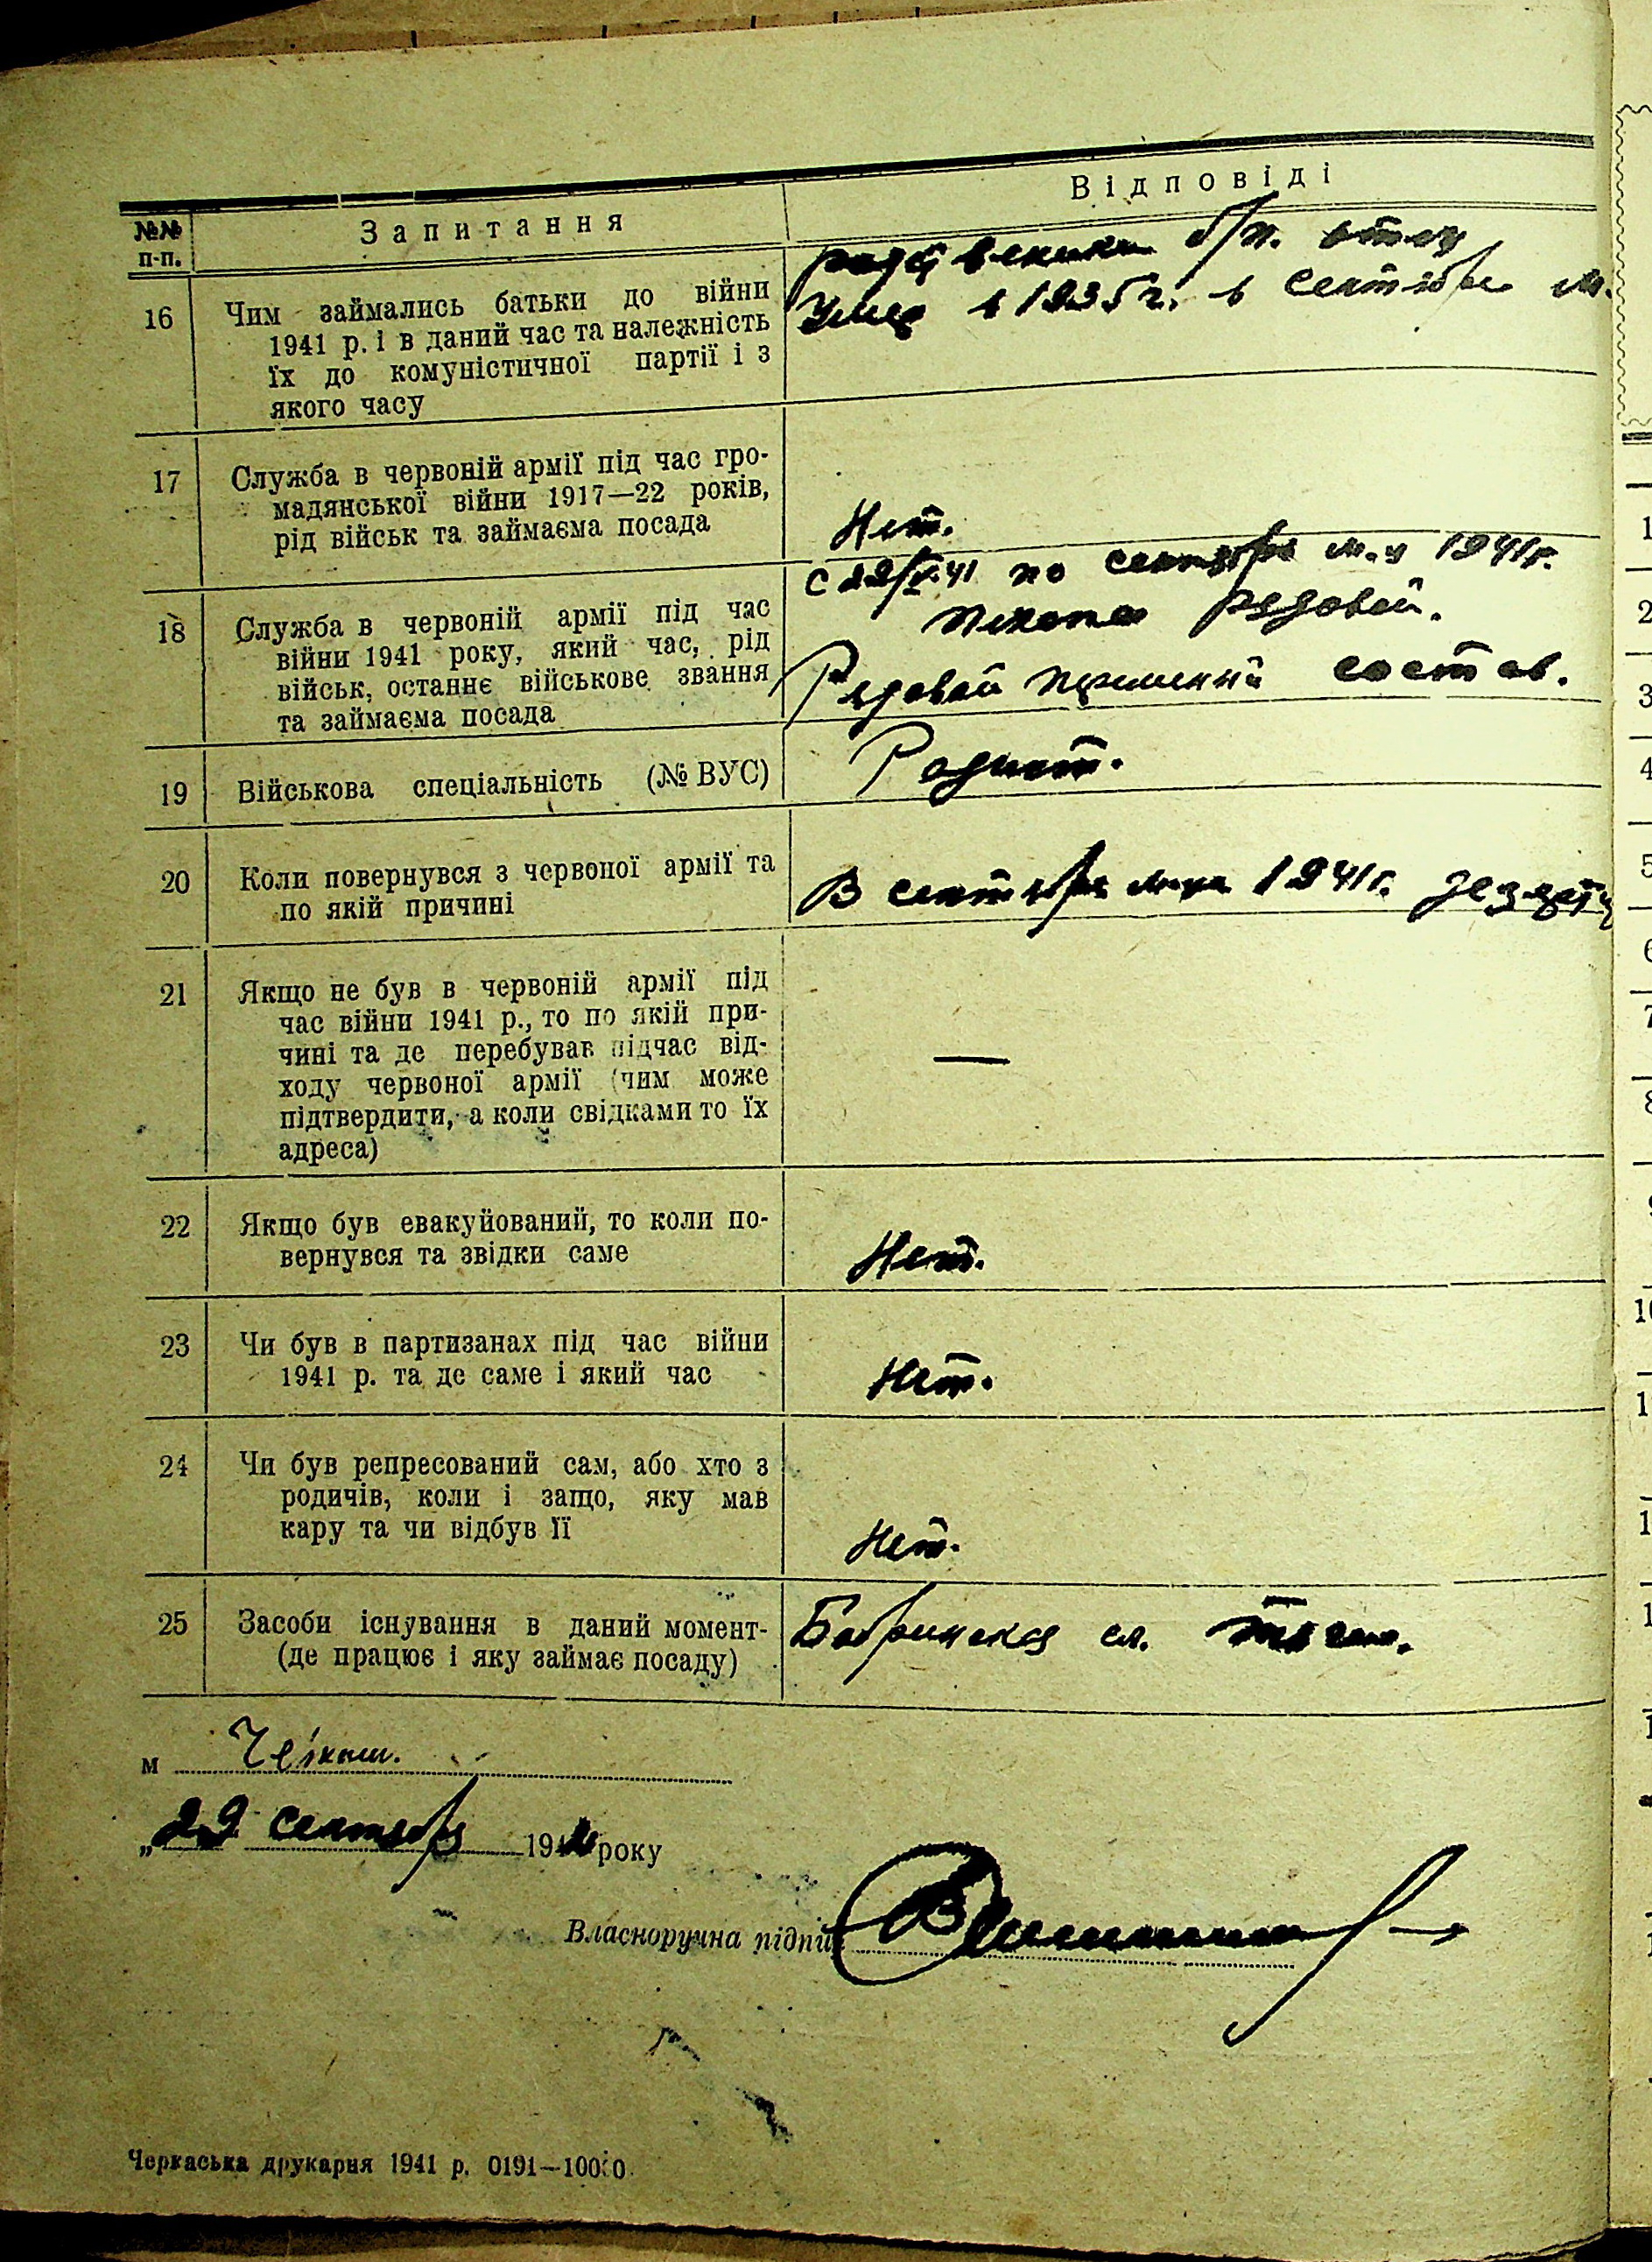 Відповіді
№№ п-п.
Запитання
16
Чим займались батьки до війни
1941 р. і в даний час та належність
їх до комуністичної партії і з
якого часу
б/п. отец
Умер в 1935 г. в сентябре м.
17
Служба в червоній армії під час гро-
мадянської війни 1917—22 років,
рід військ та займаєма посада
Нет.
18
Служба в червоній армії під час
війни 1941 року, який час, рід
військ, останнє військове звання
та займаєма посада
С по сентябрь м-ц 1941г.
Пехота рядовой.
Рядовой состав.
19
Військова спеціальність (№ ВУС)
Радист.
20
Коли повернувся з червоної армії та
по якій причині
В сентябре 1941г.
21
Якщо не був в червоній армії під
час війни 1941 р., то по якій при-
чині та де перебував підчас від-
ходу червоної армії (чим може
підтвердити, а коли свідками то їх
адреса)
—
22
Якщо був евакуйований, то коли по-
вернувся та звідки саме
Нет.
23
Чи був в партизанах під час війни
1941 р. та де саме і який час
Нет.
24
Чи був репресований сам, або хто з
родичів, коли і защо, яку мав
кару та чи відбув її
Нет.
25
Засоби існування в даний момент-
(де працює і яку займає посаду)
Бобринская ст.
м
"29 сентября 194 року
Власноручна підпис
Черкаська друкарня 1941 р. 0191—10000